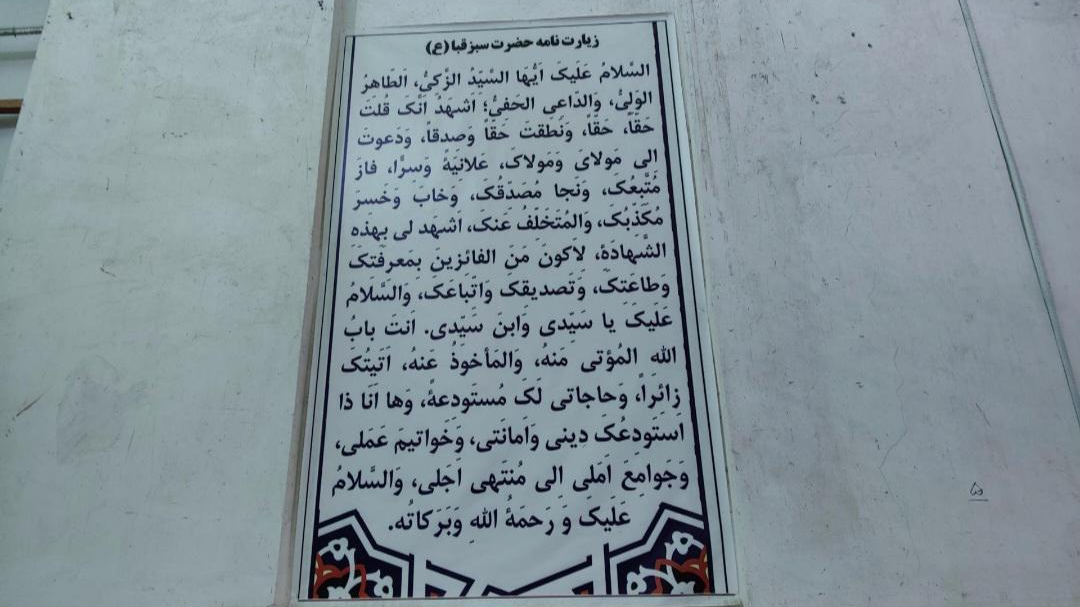 زیارت نامه حضرت سبزقبا (ع)
السَّلامُ عَلَیکَ اَیُّهَا السَّیِّدُ الزَّکیُّ، اَلطّاهِرُ
الوَلیُّ، وَالدّاعِی الحَفیُّ؛ اَشهَدُ اَنَّکَ قُلتَ
حَقّاً، حَقّاً، وَنَطَقتَ حَقّاً وَصدقاً، وَدَعوتَ
اِلی مَولایَ وَمَولاکَ، عَلانِیَةً وَسرًّا، فازَ
مُتَّبعُکَ، وَنَجا مُصَدِّقُکَ، وَخابَ وَخَسرَ
مُکَذِّبُکَ، وَالمُتَخَلِّفُ عَنکَ، اَشهَد لی بهَذه
الشَّهادَةِ، لاَکونَ مَنَ الفائزینَ بمَعرفَتکَ
وَطاعَتکَ، وَتَصدیقکَ وَاتِّباعَکَ، وَالسَّلامُ
عَلَیکَ یا سَیِّدی وَابنَ سَیِّدی. اَنتَ بابُ
الله المُؤتی مَنهُ، وَالمَأخوذُ عَنهُ، اَتَیتُکَ
زائرَاً، وَحاجاتی لَکَ مُستَودعةً، وَها اَنَا ذا
اَستَودِعُکَ دینی وَاَمانَتی، وَخَواتیمَ عَمَلی،
وَجَوامِعَ اَمَلی اِلی مُنتَهی اَجَلی، وَالسَّلامُ
عَلَیکَ وَ رَحمَةُ اللهِ وَبَرَکاتُه.
۵